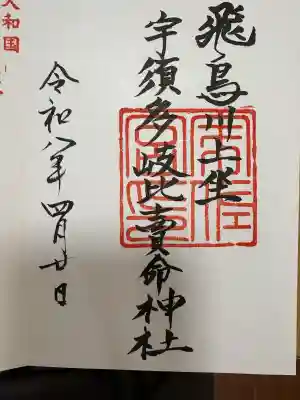 飛鳥川上坐
宇須多岐比賣命神社
令和八年四月廿日
大和国